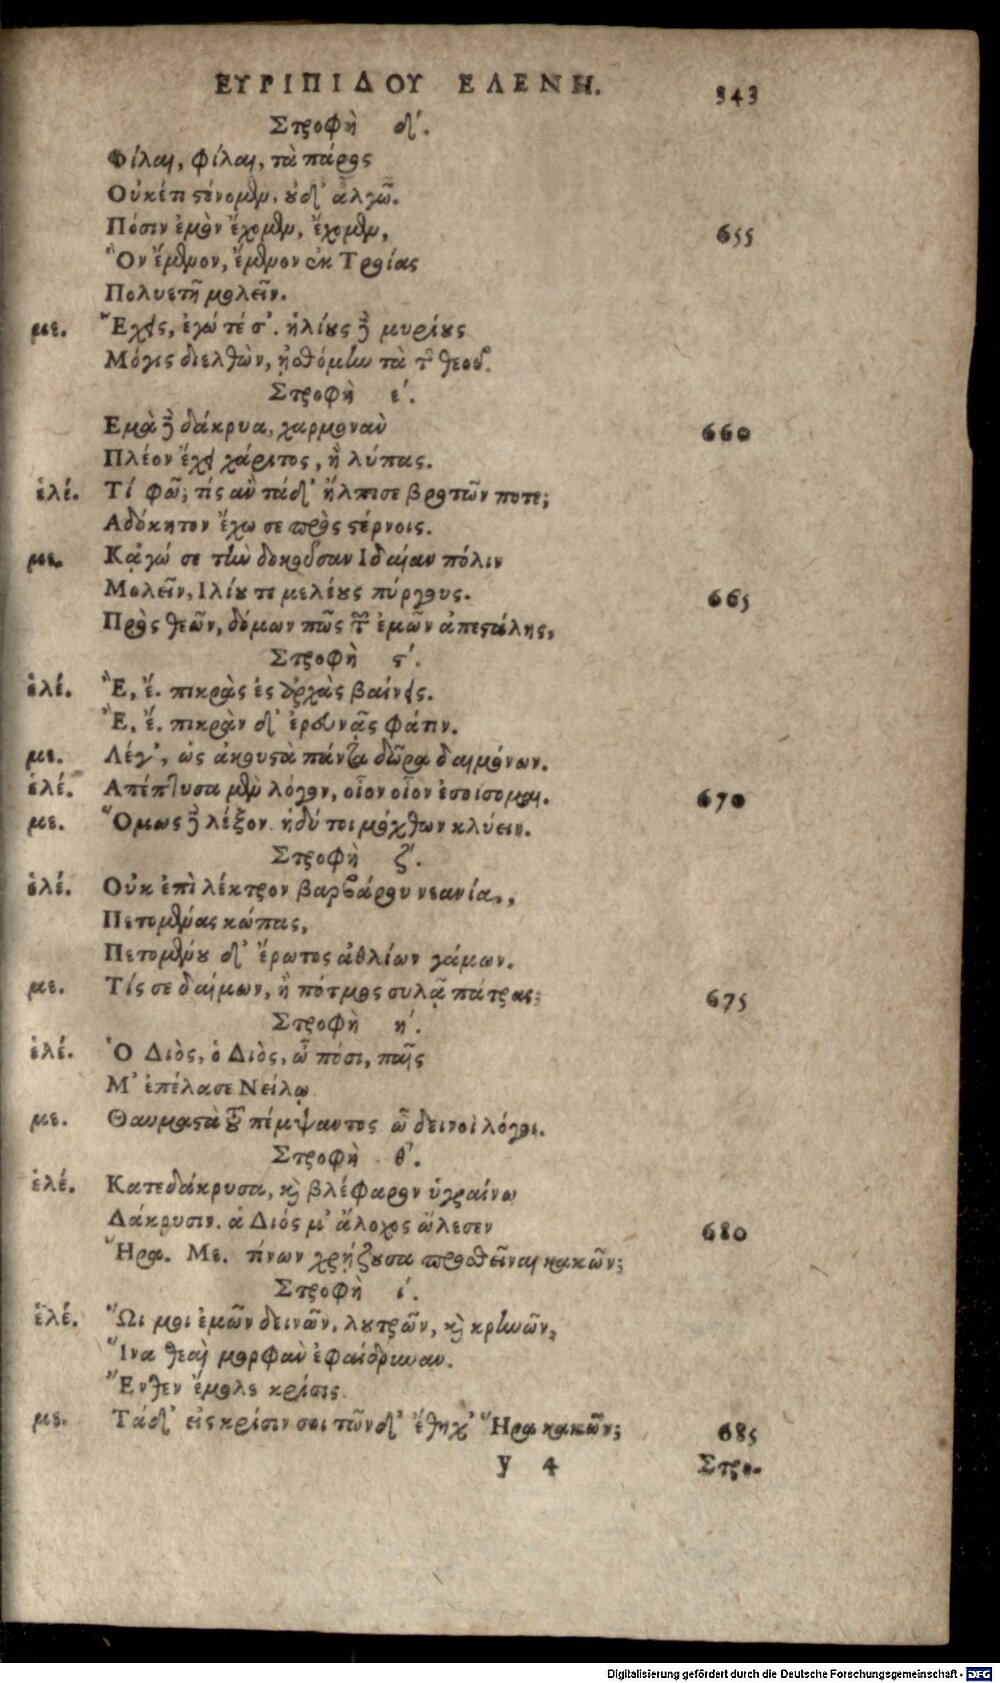 ΕΥΡΙΠΙΔΟΥ ΕΛΕΝΗ. 343
Στροφὴ δ'.
Φίλαι, φίλαι, τὰ πάρος
Οὐκέτι στένομεν, οὐδ' ἀλγῶ.
Πόσιν ἐμὸν ἔχομεν, ἔχομεν, 655
Ὃν ἔμενον, ἔμενον ἐκ Τροίας
Πολυετῆ μολεῖν.
με. Ἔχεις, ἐγώ τέ σ'. ἡλίους δὲ μυρίους
Μόγις διελθὼν, ᾐσθόμην τὰ τῆς θεοῦ.
Στροφὴ ε'.
Εμὰ δὲ δάκρυα, χαρμονὰν 660
Πλέον ἔχει χάριτος, ἢ λύπας.
ἑλέ. Τί φῶ; τίς ἂν τάδ' ἤλπισε βροτῶν ποτε;
Αδόκητον ἔχω σε πρὸς στέρνοις.
με. Κᾀγώ σε τὴν δοκοῦσαν Ιδαίαν πόλιν
Μολεῖν, Ιλίου τε μελέους πύργους. 665
Πρὸς θεῶν, δόμων πῶς τῶν ἐμῶν ἀπεστάλης,
Στροφὴ ϛ'.
ἑλέ. Ἒ, ἔ. πικρὰς ἐς ἀρχὰς βαίνεις.
Ἒ, ἔ. πικρὰν δ' ἐρευνᾷς φάτιν.
με. Λέγ', ὡς ἀκουστὰ πάντα δῶρα δαιμόνων.
ἑλέ. Απέπτυσα μὲν λόγον, οἷον οἷον ἐσοίσομαι. 670
με. Ὅμως δὲ λέξον. ἡδύ τοι μόχθων κλύειν.
Στροφὴ ζ'.
ἑλέ. Οὐκ ἐπὶ λέκτρον βαρβάρου νεανία,,
Πετομένας κώπας,
Πετομένου δ' ἔρωτος ἀθλίων γάμων.
με. Τίς σε δαίμων, ἢ πότμος συλᾷ πάτρας; 675
Στροφὴ η'.
ἑλέ. Ὁ Διὸς, ὁ Διὸς, ὦ πόσι, παῖς
Μ' ἐπέλασε Νείλῳ
με. Θαυμαστὰ τοῦ πέμψαντος. ὦ δεινοὶ λόγοι.
Στροφὴ θ'.
ἑλέ. Κατεδάκρυσα, καὶ βλέφαρον ὑγραίνω
Δάκρυσιν. ἁ Διός μ' ἄλοχος ὤλεσεν 680
Ἥρα. Με. τίνων χρῄζουσα προσθεῖναι κακῶν;
Στροφὴ ι'.
ἑλέ. Ὤι μοι ἐμῶν δεινῶν, λουτρῶν, καὶ κρηνῶν,
Ἵνα θεαὶ μορφὰν ἐφαίδρυναν.
Ἔνθεν ἔμολε κρίσις.
με. Τάδ' εἰς κρίσιν σοι τῶνδ' ἔθηχ' Ἥρα κακῶν; 685
y 4 Στρο-
Digitalisierung gefördert durch die Deutsche Forschungsgemeinschaft - DFG